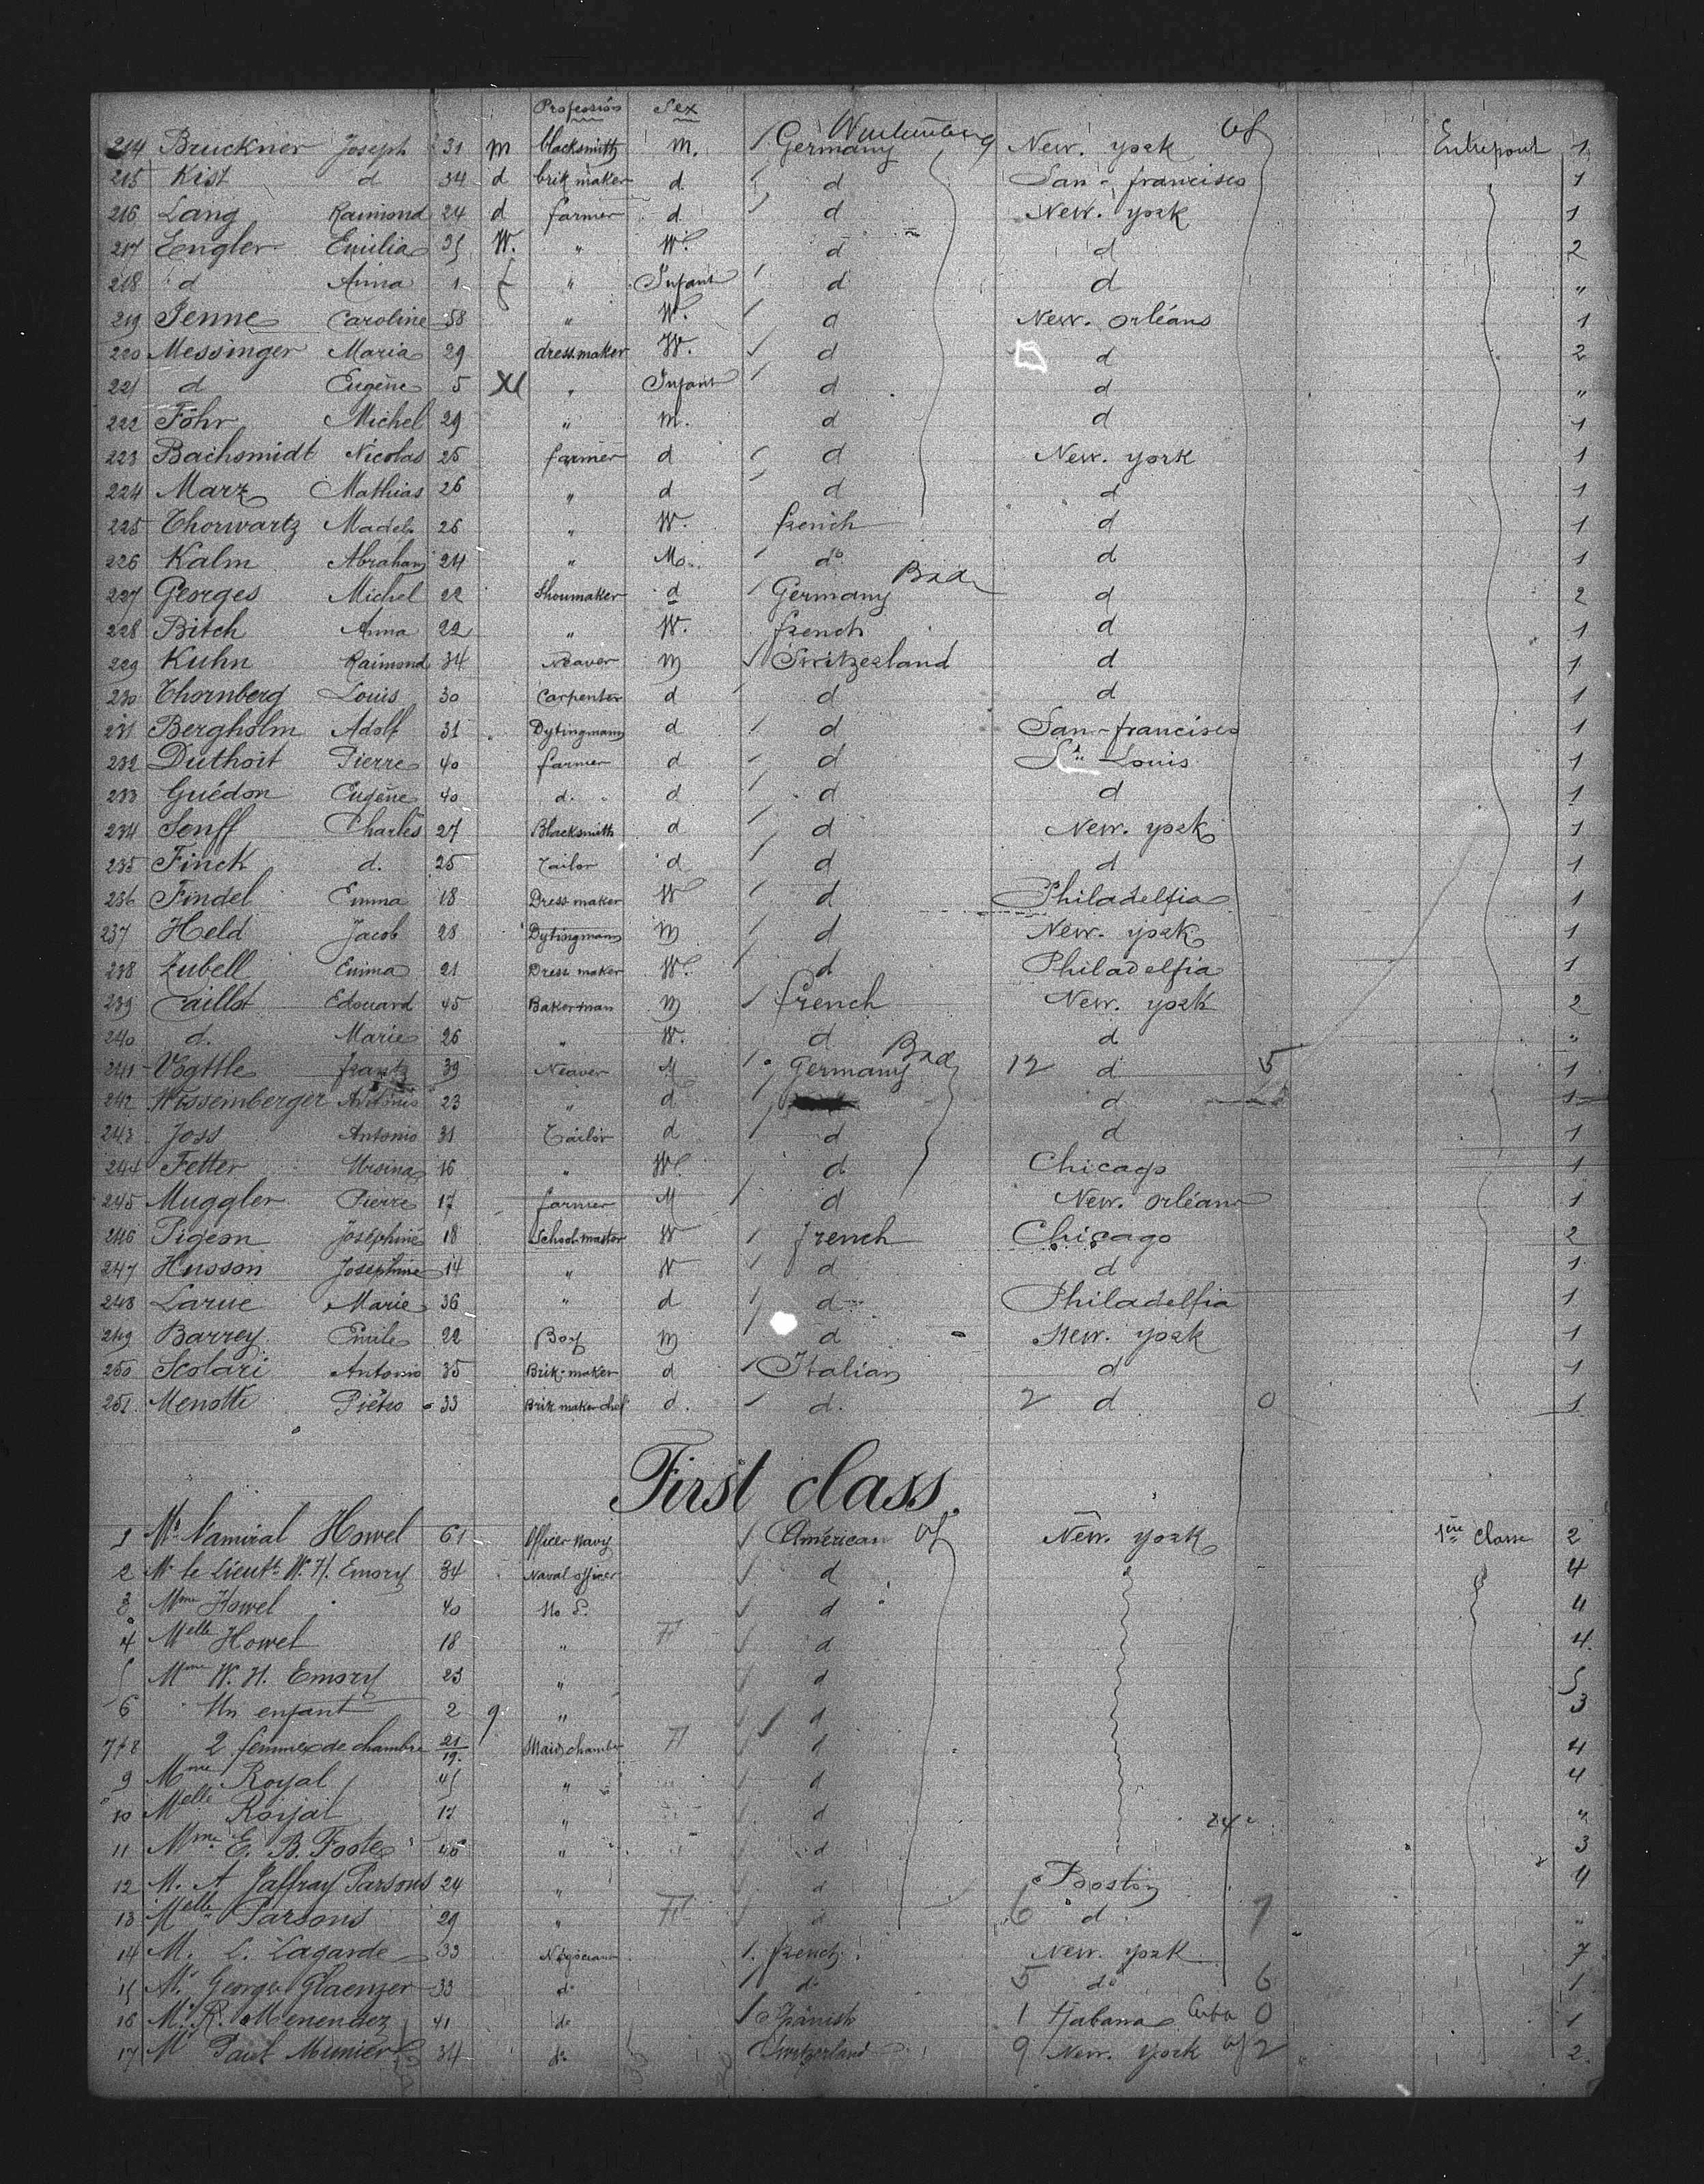 Profession Sex
214 Bruckner Joseph 31 m blacksmith m. Germany New. york Entrepont 1
215 Kist d 34 d brik maker d d San-francisco 1
216 Lang Raimond 24 d farmer d d New. york 1
217 Engler Emilia 35 W. " W. d d 2
218 d Anna 1 f " Infant d d "
219 Jenne Caroline 58 " W. d New. Orléans 1
220 Messinger Maria 29 dressmaker W. d d 2
221 d Eugène 5 " Infant d d "
222 Föhr Michel 29 " m. d d 1
223 Bachsmidt Nicolas 25 farmer d d New. york 1
224 Marz Mathias 26 " d d d 1
225 Thorwartz Madel. 26 " W. french d 1
226 Kalm Abraham 24 " M. do d 1
Bad
227 Georges Michel 22 Shoumaker d Germany d 2
228 Bitch Anna 22 " W. french d 1
229 Kuhn Raimond 34 Neaver m Switzerland d 1
230 Thornberg Louis 30 Carpenter d d d 1
231 Bergholm Adolf 31 Dytingmann d d San-francisco 1
232 Duthoit Pierre 40 farmer d d St Louis 1
233 Guédon Eugène 40 d. d d d 1
234 Senff Charles 27 Blacksmith d d New. york 1
235 Finck d. 25 Tailor d d d 1
236 Findel Emma 18 Dress maker W d Philadelfia 1
237 Held Jacob 28 Dytingmann m d New. york 1
238 Zubell Emma 21 Dress maker W. d Philadelfia 1
239 Caillot Edouard 45 Bakerman m french New. york 2
240 d. Marie 26 " W. d d "
Bad
241 Vogttle frantz 39 Neaver M Germany 12 d 5 1
242 Wissemberger Antonio 23 " d d 1
243 Joss Antonio 31 Tailor d d d 1
244 Fetter Ursina 16 " W. d Chicago 1
245 Muggler Pierre 17 farmer M d New. Orléans 1
246 Pigeon Joséphine 18 School-master W french Chicago 2
247 Husson Joséphine 14 " W d d 1
248 Larue Marie 36 " d d Philadelfia 1
249 Barrey Emile 22 Boy m d New. york 1
250 Scolari Antonio 35 Brik-maker d Italian d 1
251 Menotti Piétro 33 Brik maker chef d. d. 2 d 0 1
First class.
1 Mr l'amiral Howel 61 Officer Navy American New. york 1ère classe 2
2 Mr le Lieutt W. H. Emory 34 Naval officer d 4
3 Mme Howel 40 d 4
4 Melle Howel 18 " F d 4
5 Mme W. H. Emory 23 " d 5
6 Un enfant 2 " d 3
7 & 8 2 femmes de chambre 21 19 Maid chamber F d 4
9 Mme Royal 45 " d 4
10 Melle Roijal 17 " d "
11 Mme E. B. Foote 46 " d 3
12 M. A Jaffray Parsons 24 " d Boston 4
13 Melle Parsons 29 " F d 6 d 7 "
14 M. L. Lagarde 33 Négociant french New. york 7
15 Mr Georges Glaenzer 33 do do 5 do 6 1
16 Mr R. Menendez 41 do Spanish 1 Habana Cuba 0 1
17 Mr Paul Meunier 34 do Switzerland 9 New. York 2 2